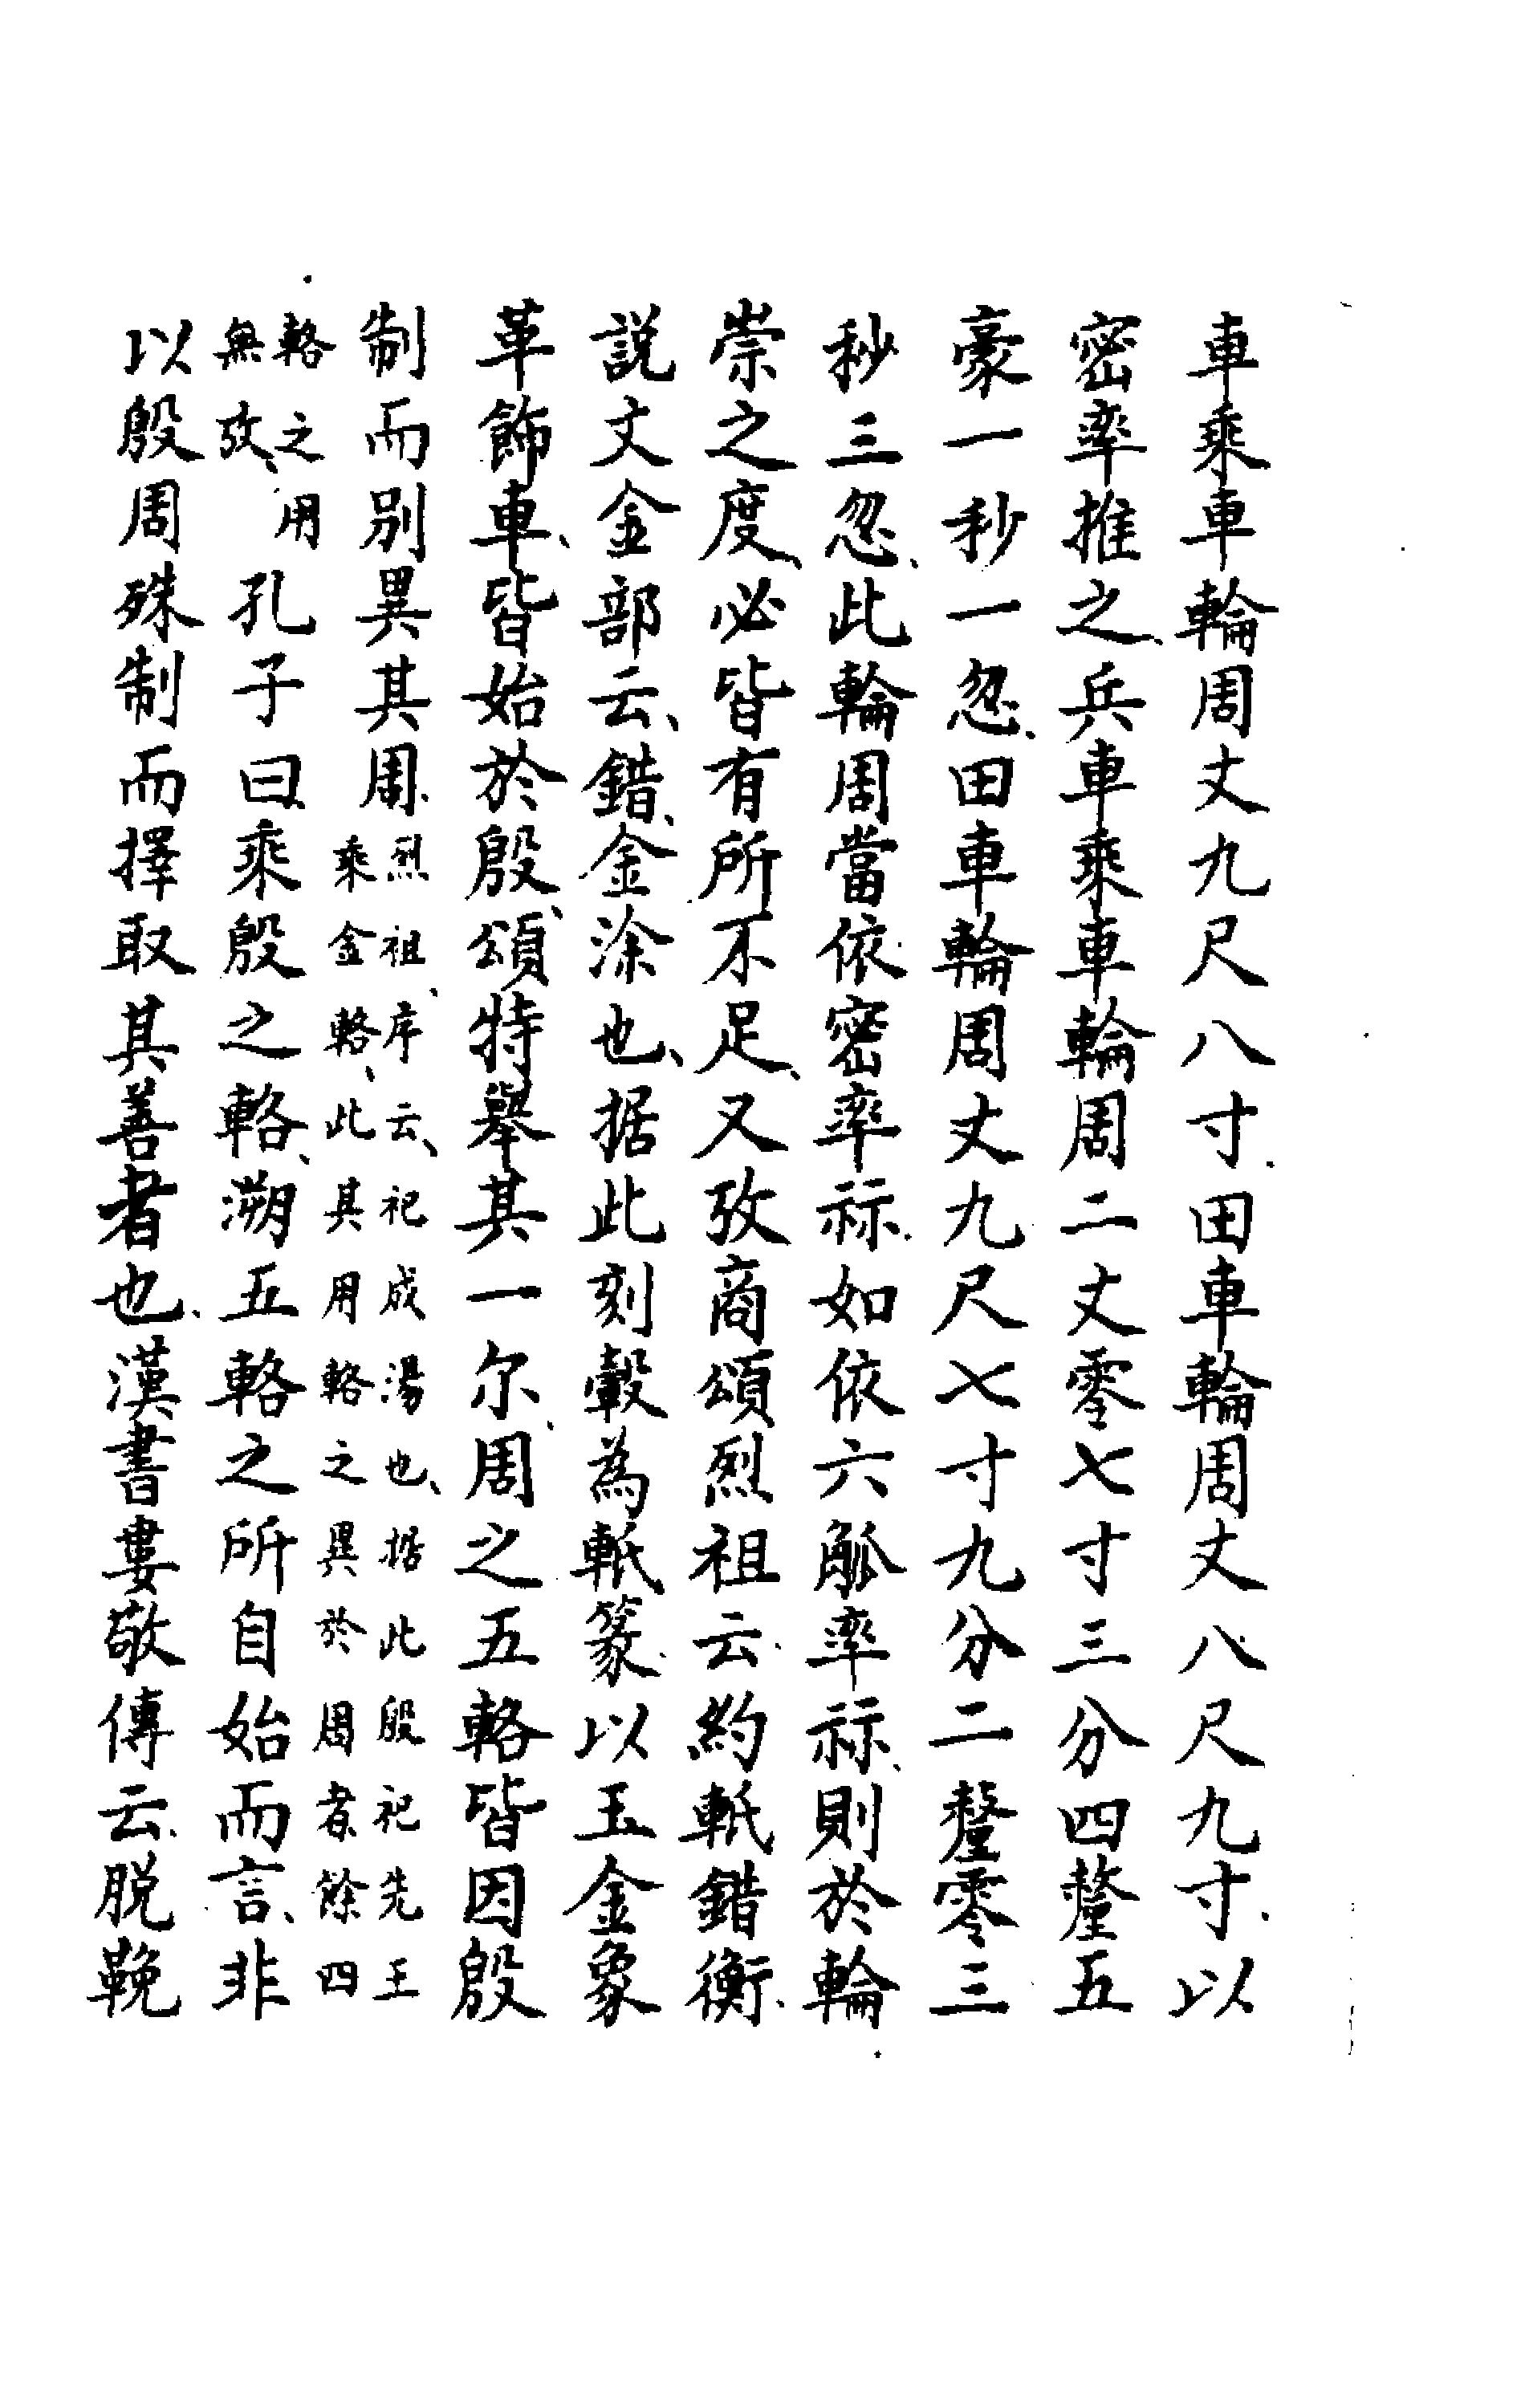 車乘車輪周丈九尺八寸田車輪周丈八尺九寸以
密率推之兵車乘車輪周二丈零七寸三分四釐五
豪一秒一忽田車輪周丈九尺七寸九分二釐零三
秒三忽此輪周當依密率祘如依六觚率祘則於輪
崇之度必皆有所不足又攷商頌烈祖云約軧錯衡
說文金部云錯金涂也据此刻轂為軧篆以玉金象
革飾車皆始於殷頌特舉其一尔周之五輅皆因殷
制而別異其周
烈祖序云祀成湯也据此殷祀先王
乘金輅此其用輅之異於周者餘四
輅之用
無攷
孔子曰乘殷之輅溯五輅之所自始而言非
以殷周殊制而擇取其善者也漢書婁敬傳云脫輓